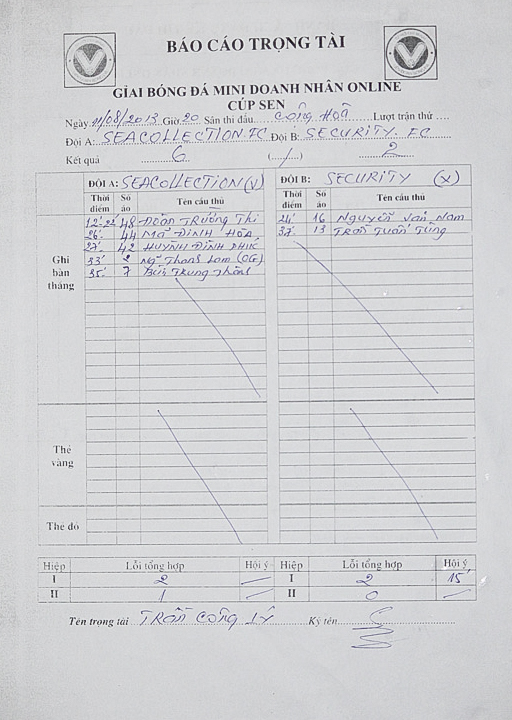 BÁO CÁO TRỌNG TÀI
GIẢI BÓNG ĐÁ MINI DOANH NHÂN ONLINE
CÚP SEN
Ngày 11/08/2013 Giờ 20 Sân thi đấu CỘNG HOÀ Lượt trận thứ ....
Đội A: SEACOLLECTION.FC Đội B: SECURITY. FC
Kết quả 6 (..../....) 2
ĐỘI A: SEACOLLECTION (V) ĐỘI B: SECURITY (X)
Thời điểm Số áo Tên cầu thủ Thời điểm Số áo Tên cầu thủ
Ghi bàn thắng
12'.22' 48 ĐOÀN TRƯỜNG Thi 24' 16 NGUYỄN VĂN NAM
26' 44 MÃ ĐÌNH HÒA 37' 13 TRẦN TUẤN TÙNG
27' 42 HUỲNH ĐÌNH PHÚC
33' 2 Thanh Lam (OG)
35' 7 Bùi Trung
Thẻ vàng
Thẻ đỏ
Hiệp Lỗi tổng hợp Hội ý Hiệp Lỗi tổng hợp Hội ý
I 2 — I 2 15'
II 1 — II 0 —
Tên trọng tài TRẦN CÔNG LÝ Ký tên